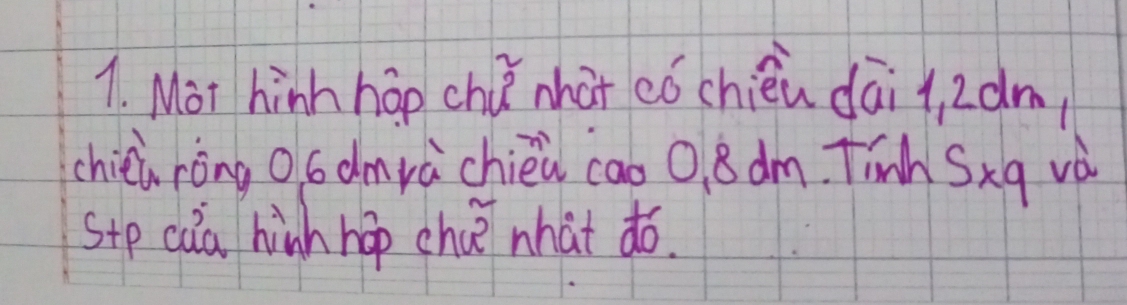 1. Một hình hộp chữ nhật có chiều dài 1,2dm,
chiều rộng 0,6 dm và chiều cao 0,8 dm. Tính Sxq và
Stp của hình hộp chữ nhật đó.